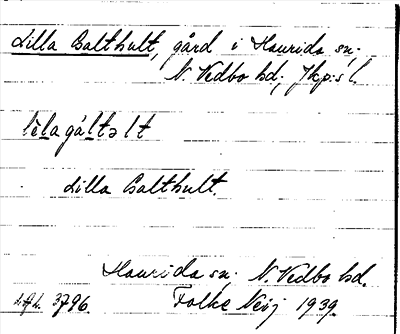 Lilla Galthult, gård i Haurida sn.
N. Vedbo hd; Jkp:s l.
lèlagáltəlt
Lilla Galthult.
Haurida sn. N. Vedbo hd.
3796. Folke Neij 1939.